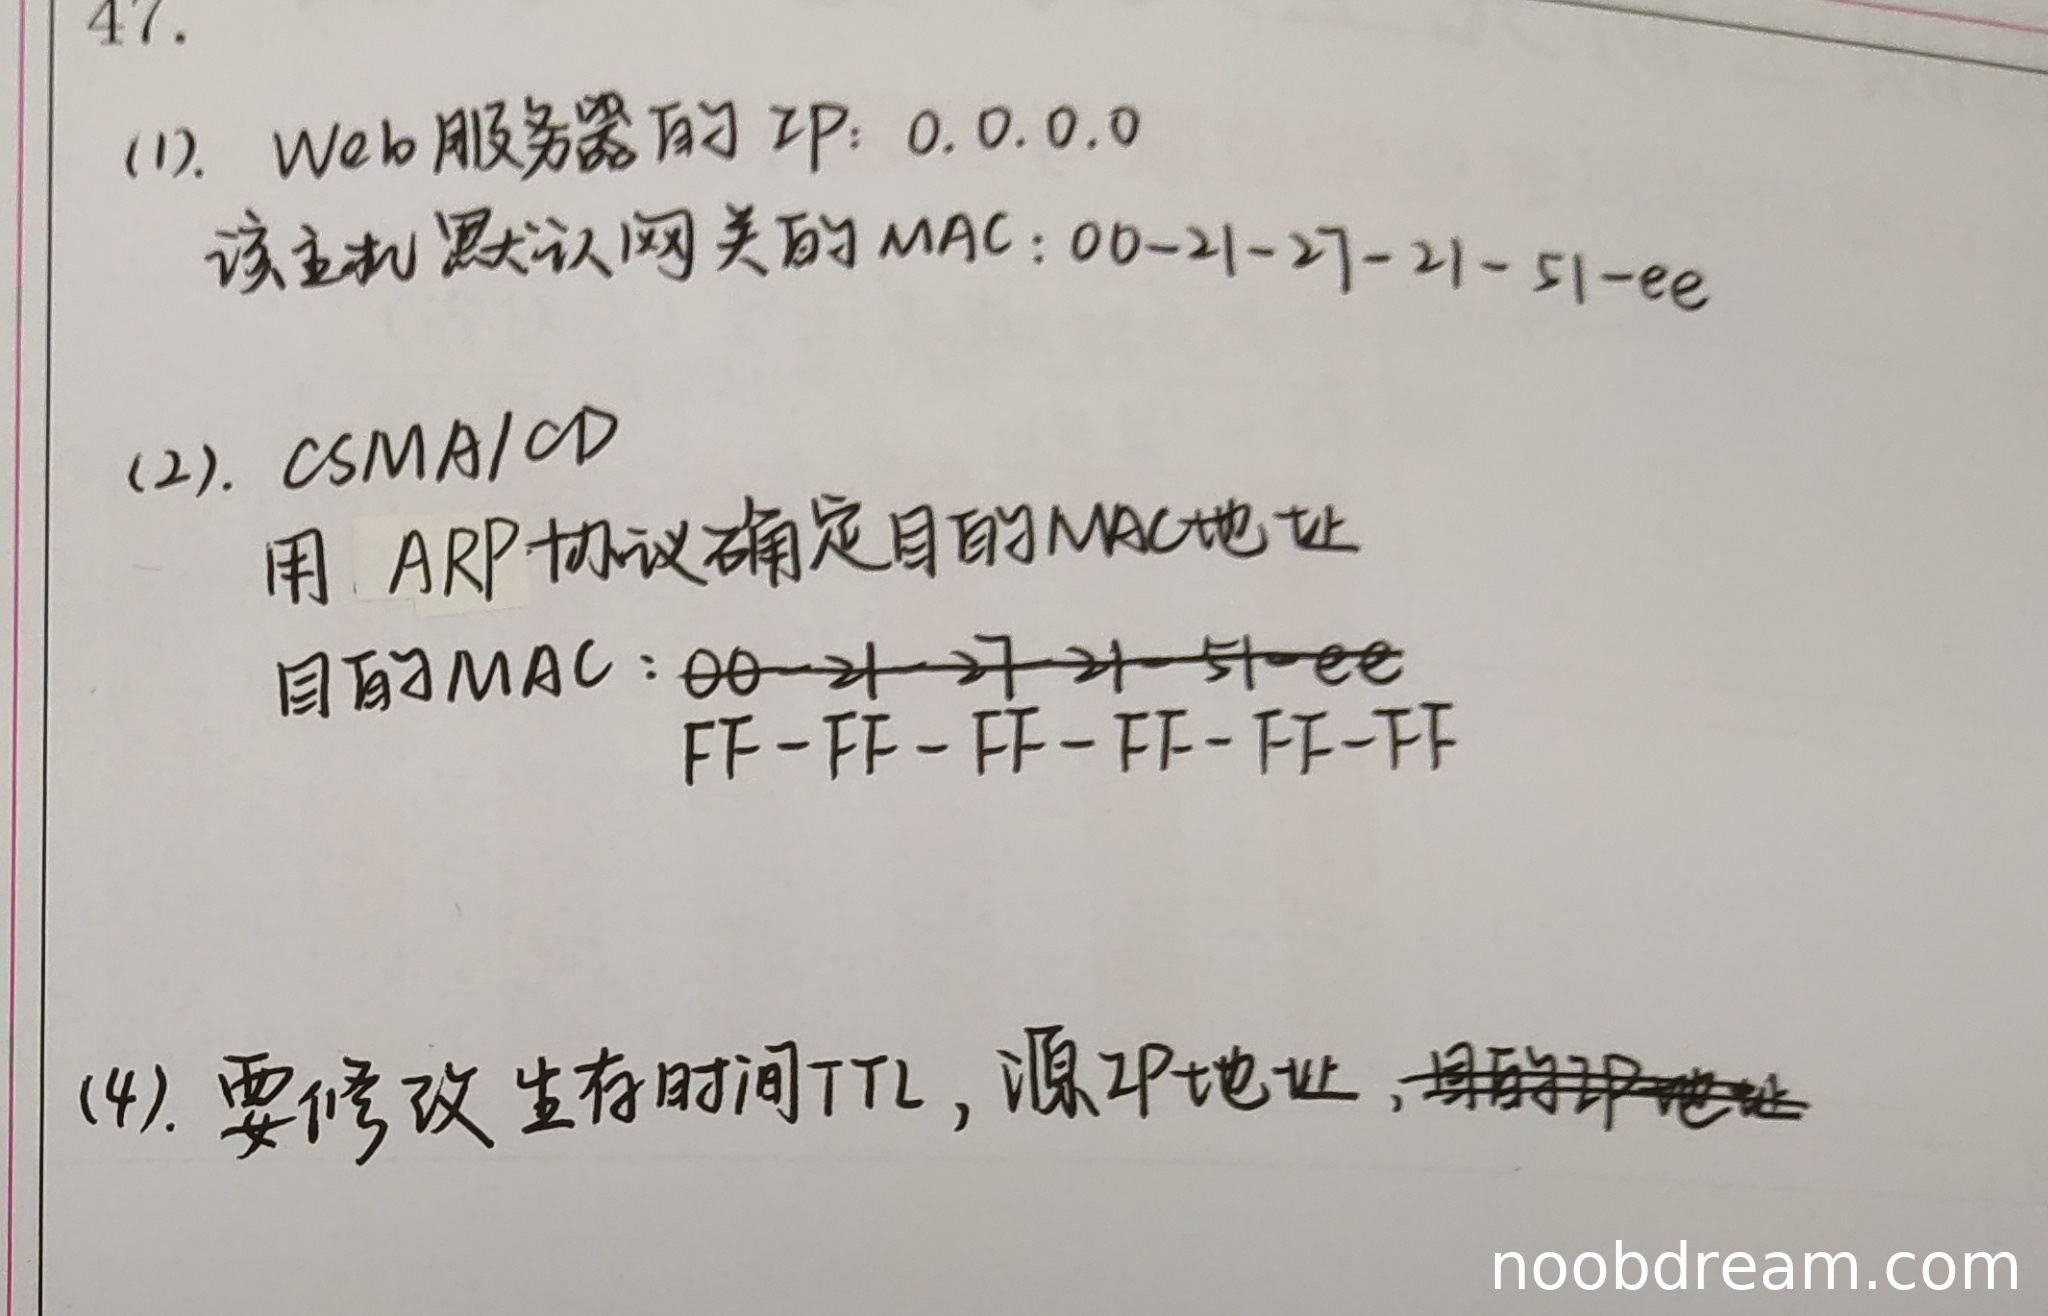 47.
(1). Web服务器的IP: 0.0.0.0
该主机默认网关的MAC: 00-21-27-21-51-ee
(2). CSMA/CD
用 ARP协议确定目的MAC地址
目的MAC: 00-21-27-21-51-ee
FF-FF-FF-FF-FF-FF
(4). 要修改生存时间TTL, 源IP地址, 目的IP地址
noobdream.com